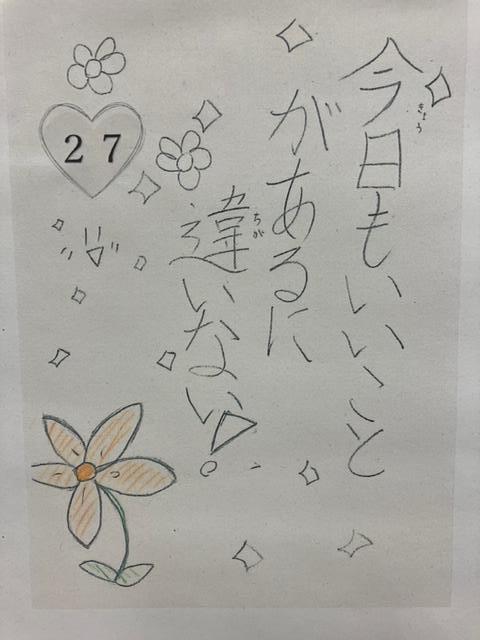 今日もいいこと
きょう
があるに
違いない!
ちが
27